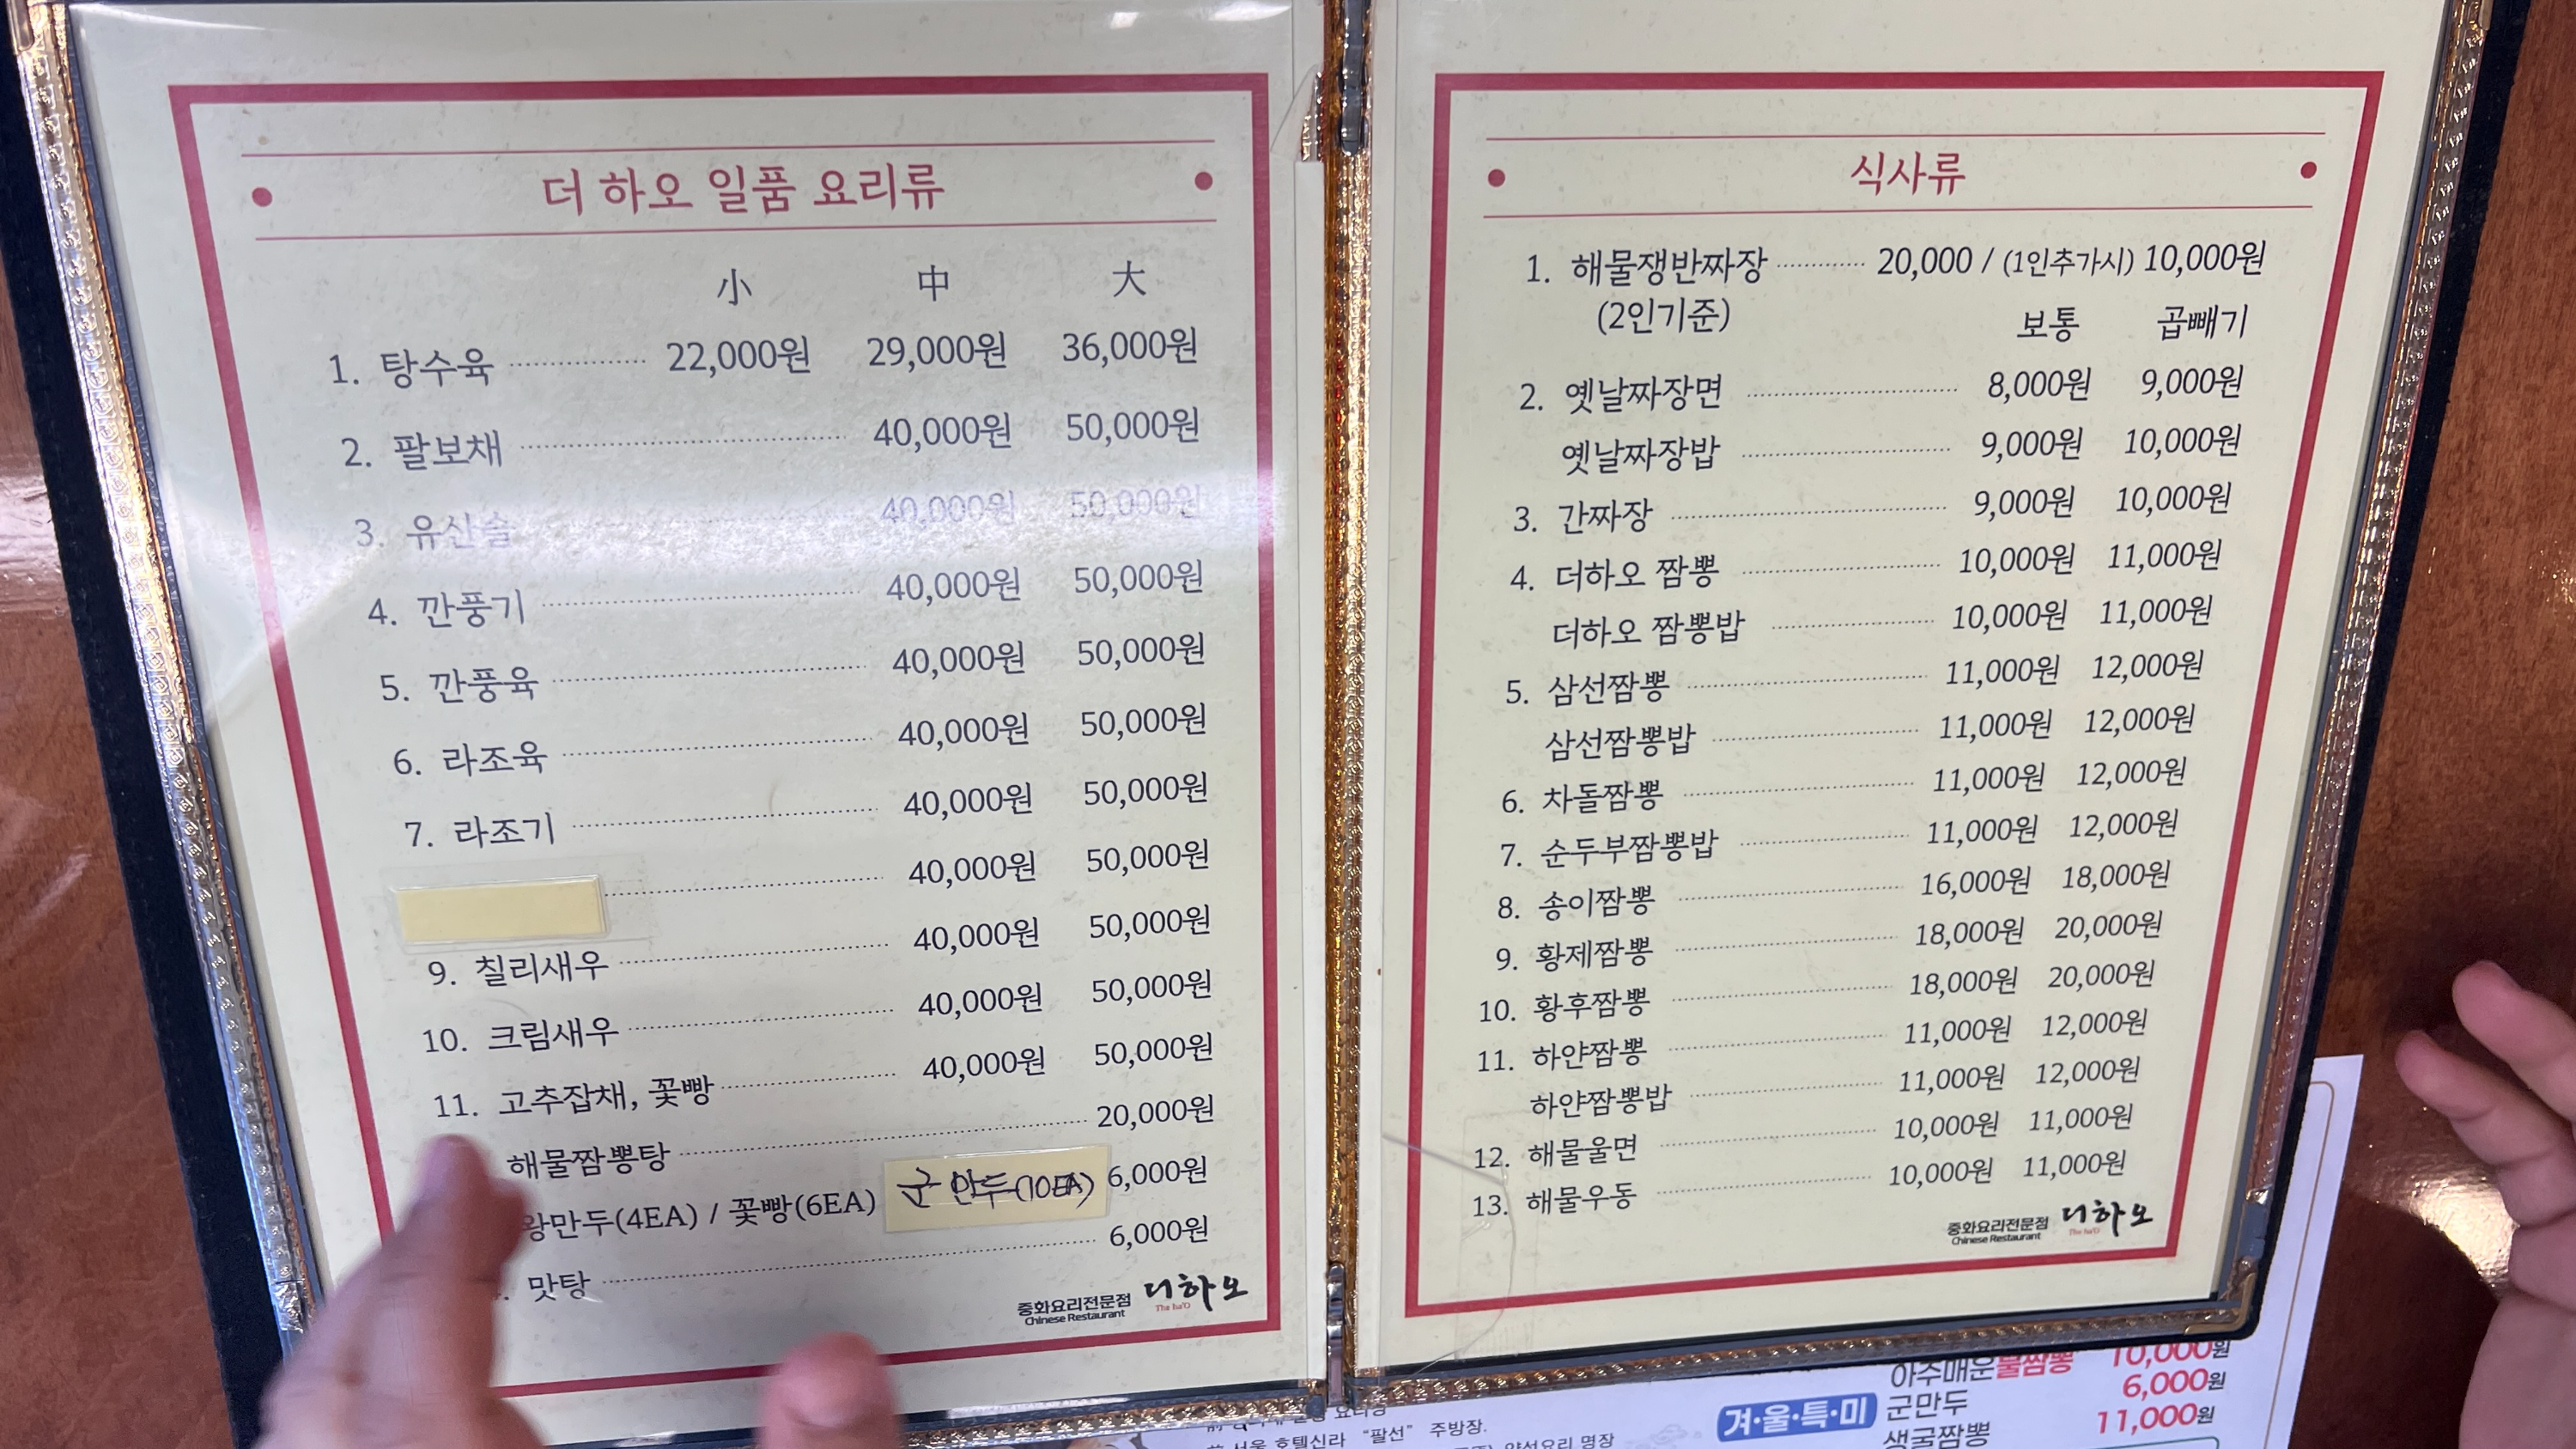 더 하오 일품 요리류
小 中 大
1. 탕수육 22,000원 29,000원 36,000원
2. 팔보채 40,000원 50,000원
3. 유산슬 40,000원 50,000원
4. 깐풍기 40,000원 50,000원
5. 깐풍육 40,000원 50,000원
6. 라조육 40,000원 50,000원
7. 라조기 40,000원 50,000원
40,000원 50,000원
9. 칠리새우 40,000원 50,000원
10. 크림새우 40,000원 50,000원
11. 고추잡채, 꽃빵 40,000원 50,000원
해물짬뽕탕 20,000원
왕만두(4EA) / 꽃빵(6EA) 군만두(10EA) 6,000원
맛탕 6,000원
중화요리전문점 더하오
Chinese Restaurant The ha'O
식사류
1. 해물쟁반짜장 20,000 / (1인추가시) 10,000원
(2인기준)
보통 곱빼기
2. 옛날짜장면 8,000원 9,000원
옛날짜장밥 9,000원 10,000원
3. 간짜장 9,000원 10,000원
4. 더하오 짬뽕 10,000원 11,000원
더하오 짬뽕밥 10,000원 11,000원
5. 삼선짬뽕 11,000원 12,000원
삼선짬뽕밥 11,000원 12,000원
6. 차돌짬뽕 11,000원 12,000원
7. 순두부짬뽕밥 11,000원 12,000원
8. 송이짬뽕 16,000원 18,000원
9. 황제짬뽕 18,000원 20,000원
10. 황후짬뽕 18,000원 20,000원
11. 하얀짬뽕 11,000원 12,000원
하얀짬뽕밥 11,000원 12,000원
12. 해물울면 10,000원 11,000원
13. 해물우동 10,000원 11,000원
중화요리전문점 더하오
Chinese Restaurant The ha'O
서울 호텔신라 “팔선” 주방장.
양성요리 명장
겨·울·특·미
아주매운불짬뽕 10,000원
군만두 6,000원
생굴짬뽕 11,000원